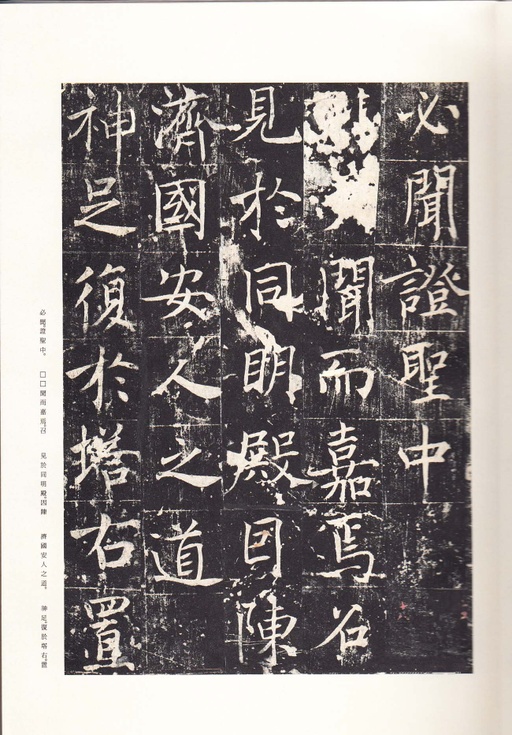 必聞證聖中
聞而嘉焉召
見於同明殿因陳
濟國安人之道
神足復於塔右置
必聞證聖中、 □□聞而嘉焉、召 見於同明殿、因陳 濟國安人之道、 神足復於塔右置